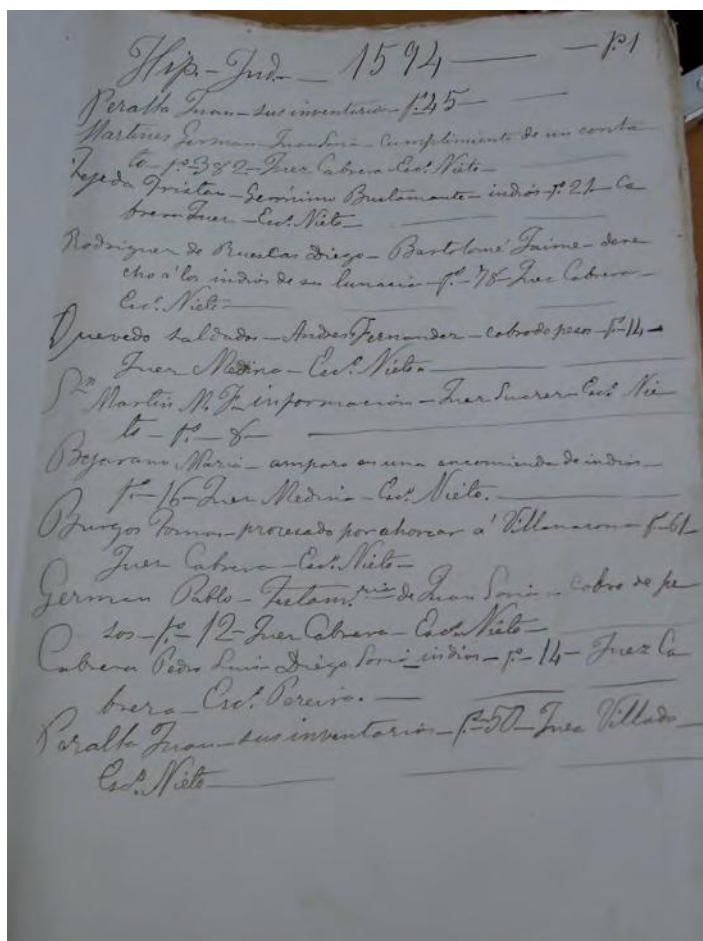 Hip.- Jud.- — 1594 — — p.1
Peralta Juan - sus inventarios - f.s 45 —
Martines German - Juan Soria - Cumplimiento de un contra
to - f.s 382 - Juez Cabrera - Esc.º Nieto —
Tejeda Tristan - Gerónimo Bustamante - indios - f.s 21 - Ca
brera Juez - Esc.º Nieto —
Rodriguez de Ruescas Diego - Bartolomé Jaime - dere
cho á los indios de su - f.s - 78 - Juez Cabrera -
Esc.º Nieto —
Quevedo - Andres Fernandez - cobro de pesos - f.s 14 -
Juez Medina - Esc.º Nieto —
S.n Martin M. F. información - Juez Suarez - Esc.º Nie
to - f.s - 8 —
Bejarano Maria - amparo en una encomienda de indios —
f.s - 16 - Juez Medina - Esc.º Nieto. —
Burgos Tomas - procesado por ahorcar á - f.s 61 -
Juez Cabrera - Esc.º Nieto -
German Pablo - Testam.ria de Juan Soria - cobro de pe
sos - f.s - 12 - Juez Cabrera - Esc.º Nieto —
Cabrera Pedro Luis - Diégo Soria - indios - f.s - 14 - Juez Ca
brera - Esc.º Pereira. —
Peralta Juan - sus inventarios - f.s 50 - Juez Villado -
Esc.º Nieto —